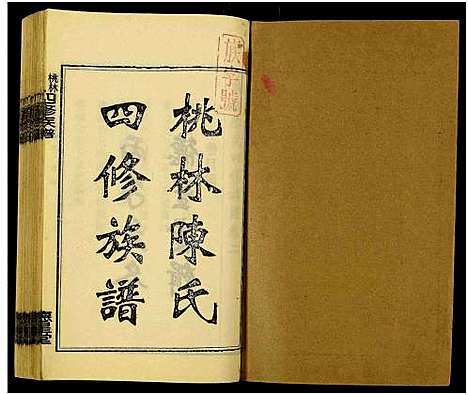 桃林陳氏
四修族譜
族字號
桃林
四修族譜